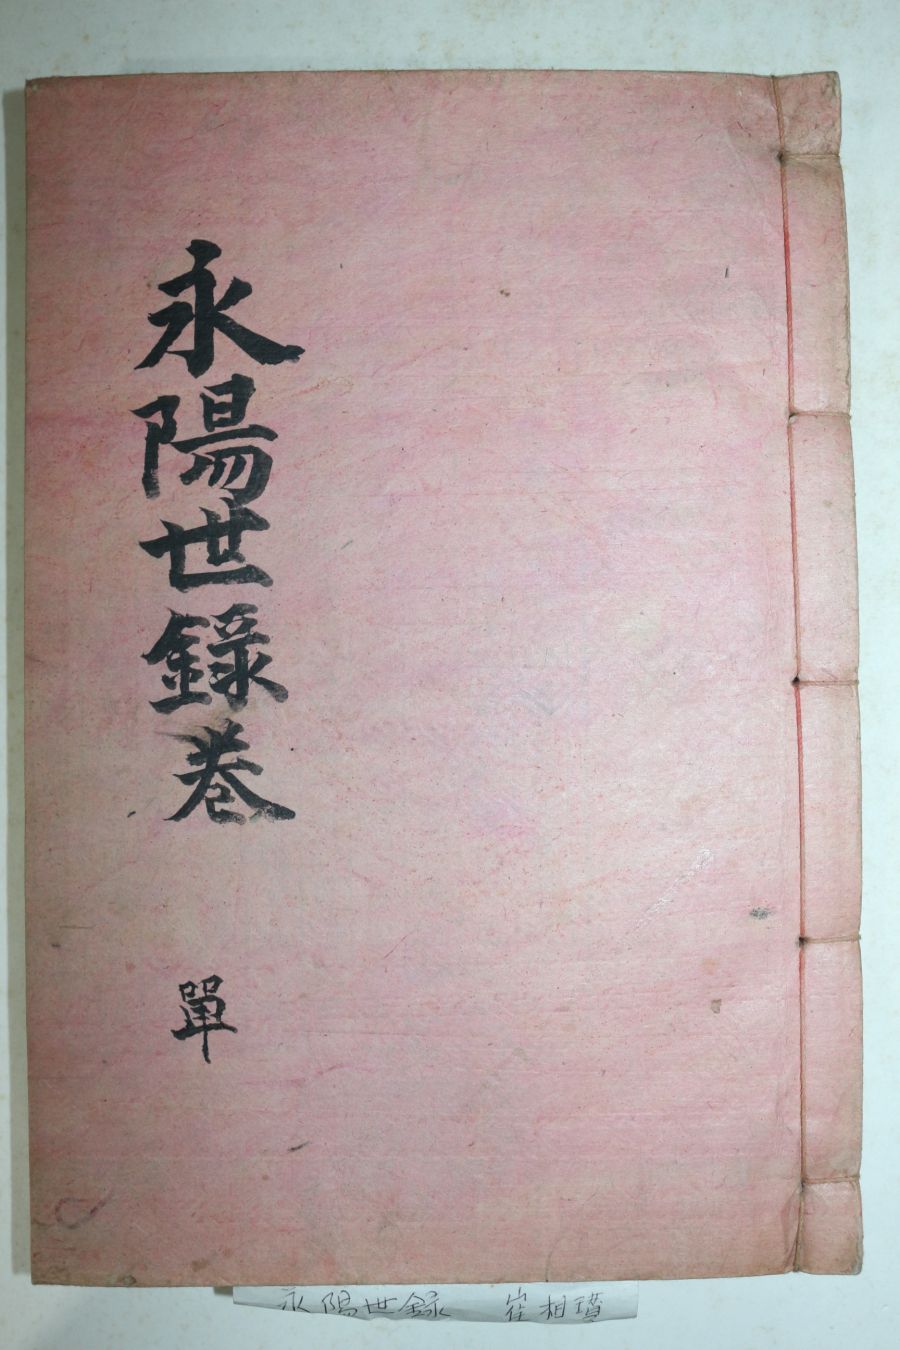 永陽世錄卷
單
永陽世錄 崔相瓚